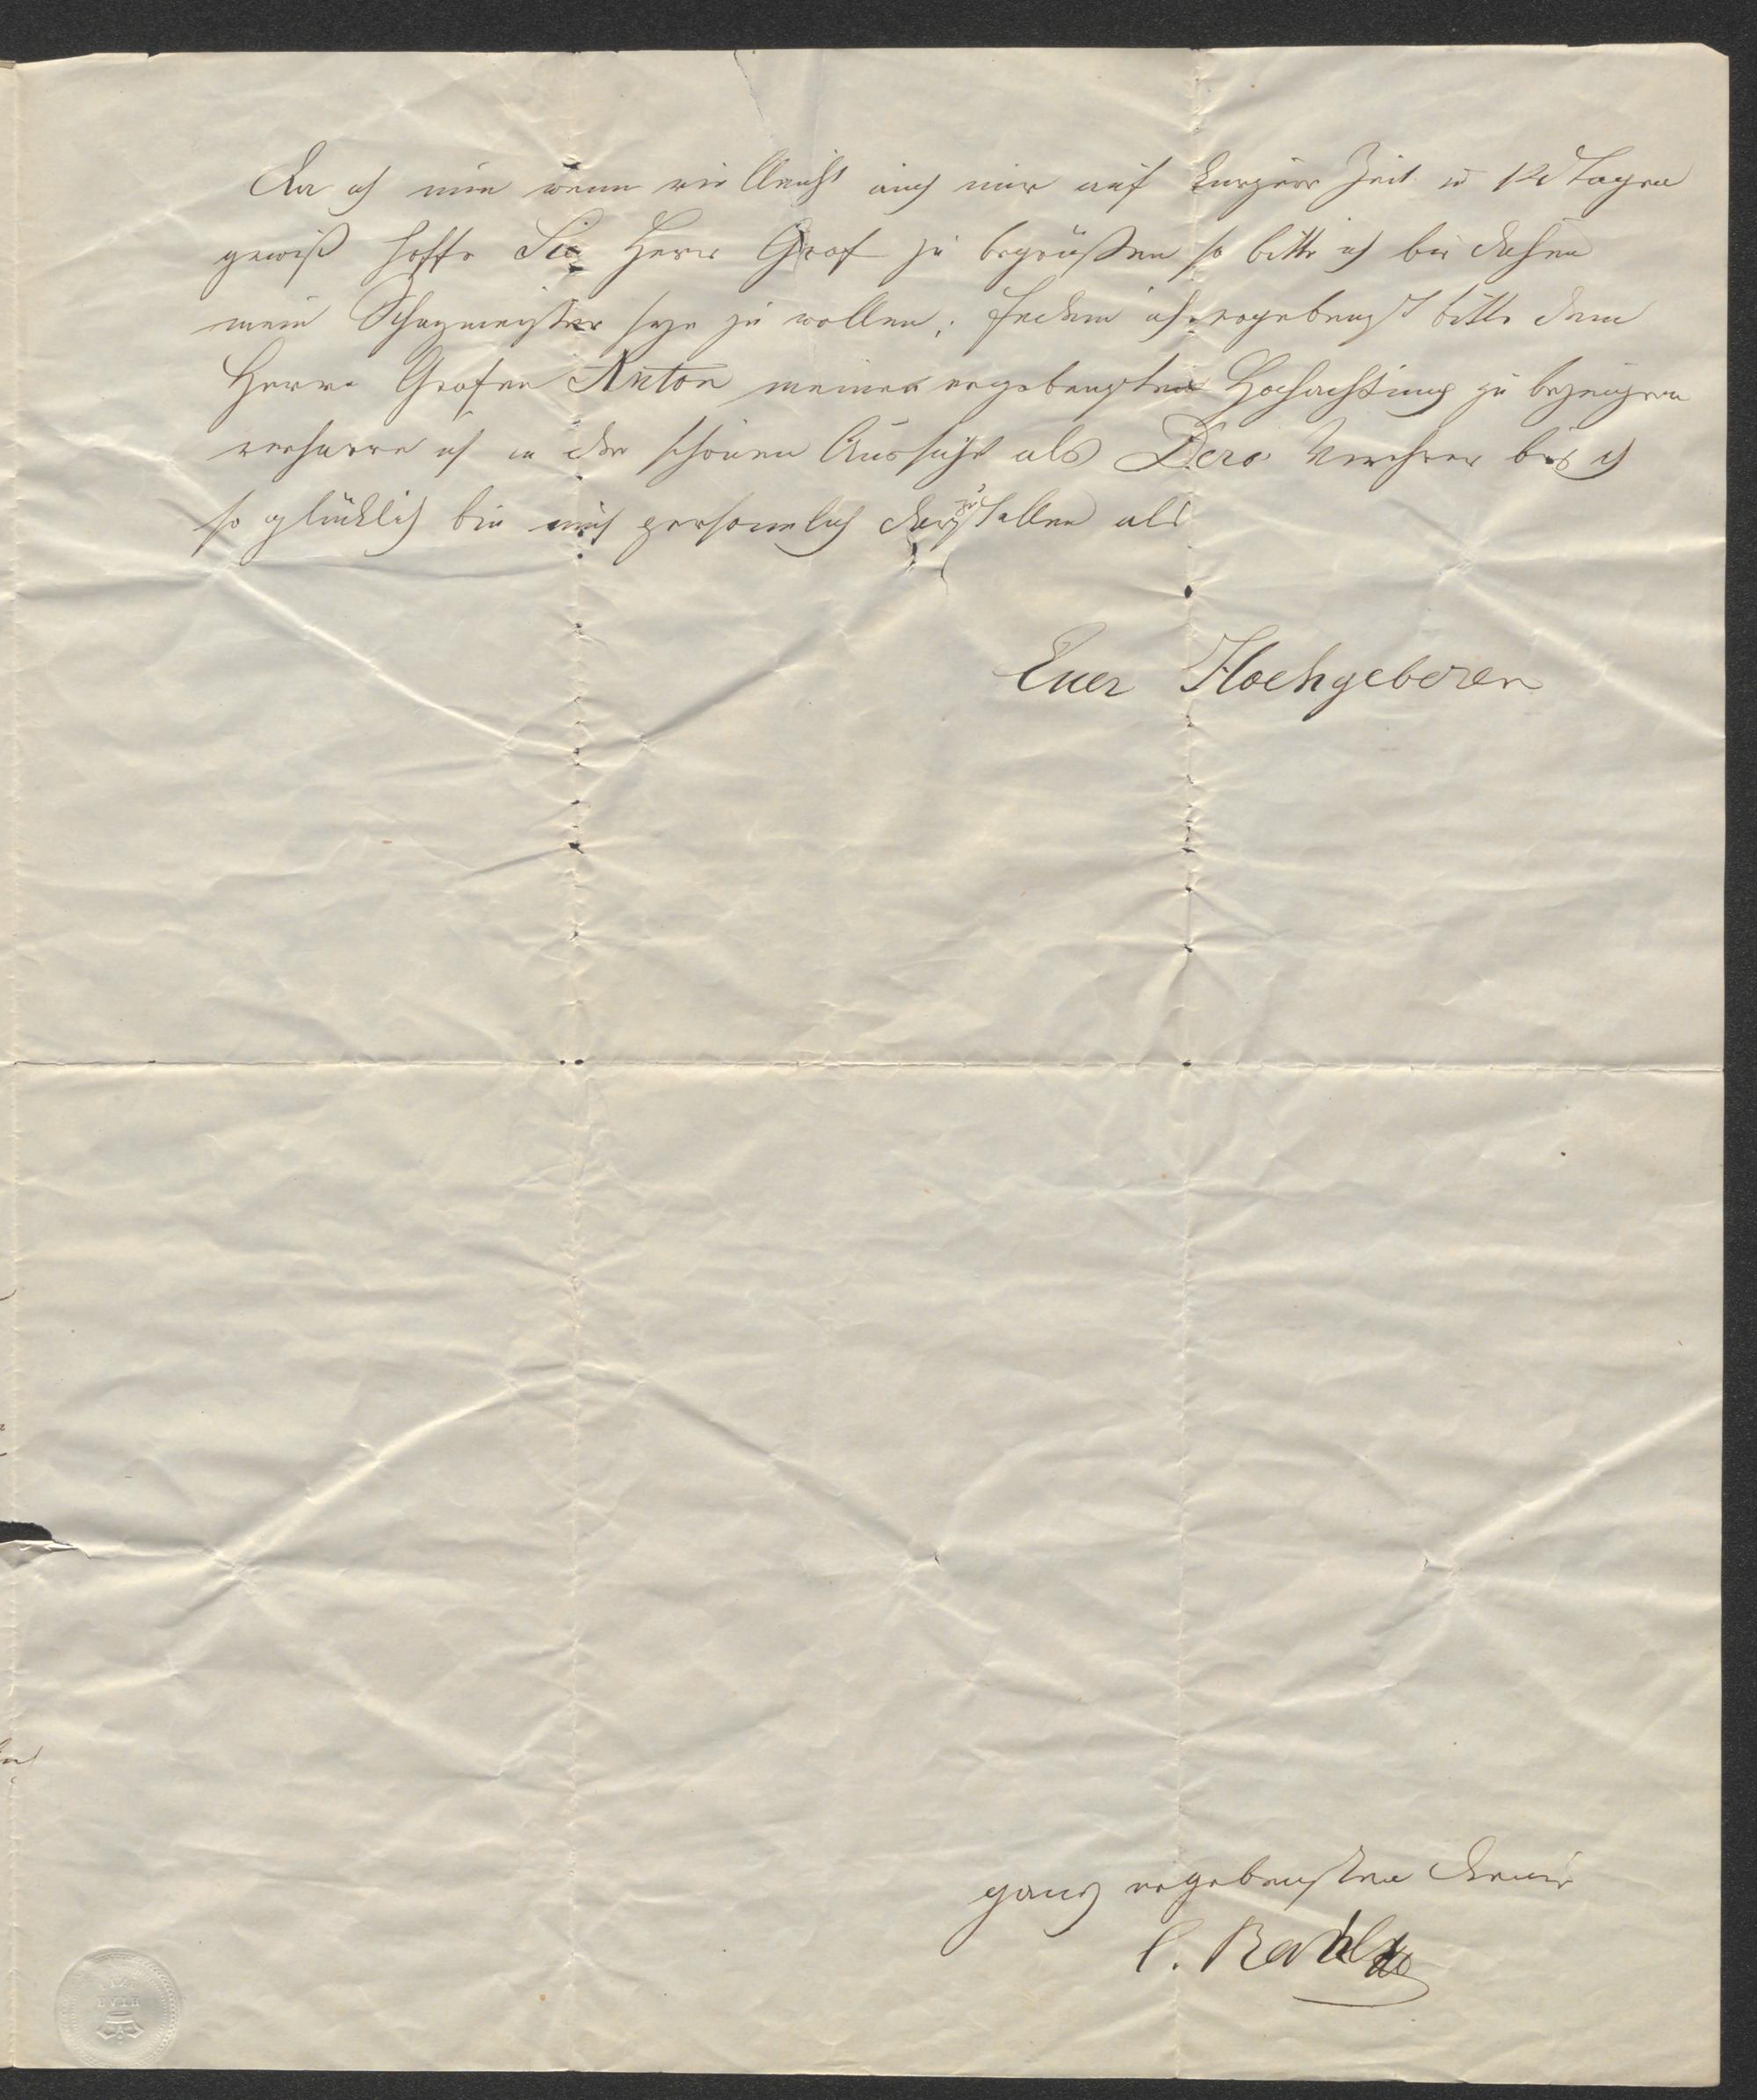 Da ich nun wenn vielleicht auch nur auf kurzere Zeit in 12 Tagen
gewiß hoffe Sie Herr Graf zu begrüßen so bitte ich bis dahin
mein Schazmeister seyn zu wollen; Indem ich ergebenst bitte dem
Herrn Grafen Anton meinen ergebensten Hochachtung zu bezeugen
verharre ich in der schönen Aussicht als Dero Verehrer bis ich
so glücklich bin mich persoenlich darzustellen als
Euer Hochgeboren
ganz ergebensten Diener
C. Rahl